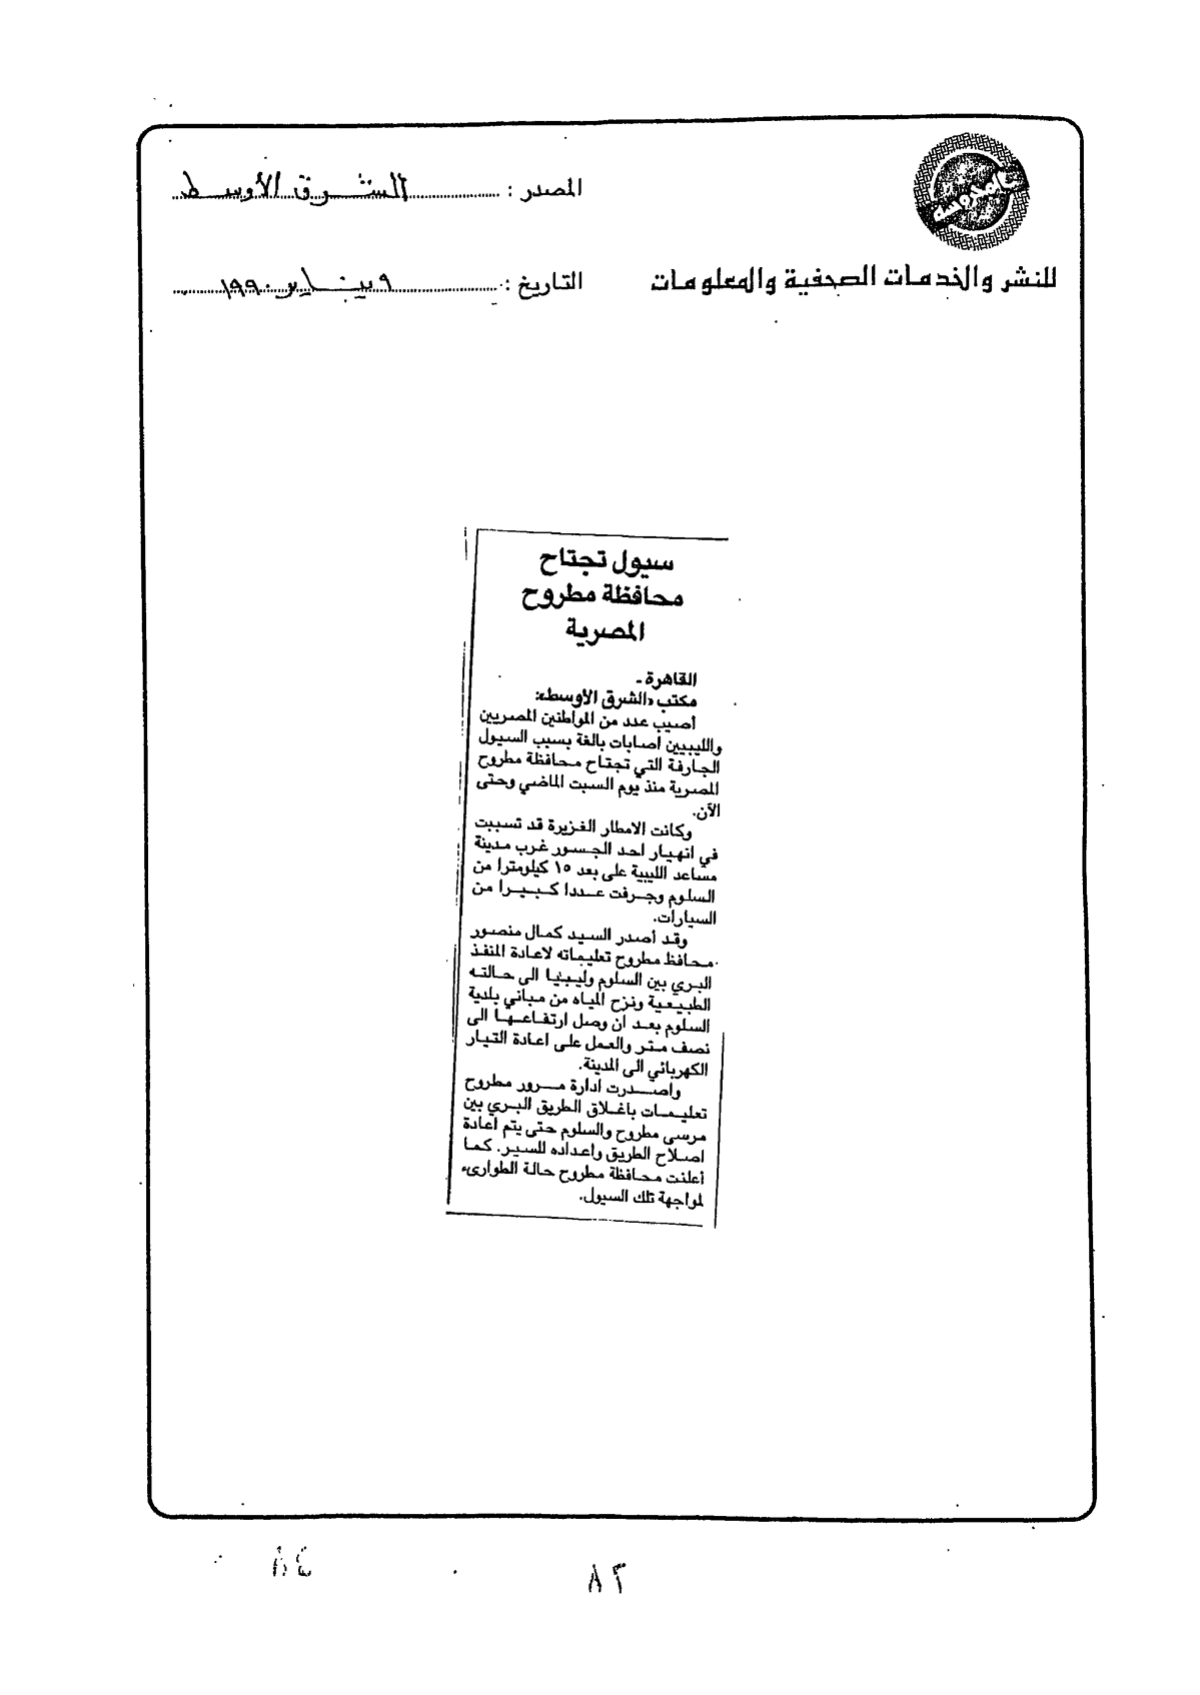 المصدر : الشرق الأوسط
للنشر والخدمات الصحفية والمعلومات
التاريخ : ٩ يناير ١٩٩٠
سيول تجتاح
محافظة مطروح
المصرية
القاهرة -
مكتب «الشرق الأوسط»:
أصيب عدد من المواطنين المصريين
والليبيين أصابات بالغة بسبب السيول
الجارفة التي تجتاح محافظة مطروح
المصرية منذ يوم السبت الماضي وحتى
الآن.
وكانت الامطار الغزيرة قد تسببت
في انهيار احد الجسور غرب مدينة
مساعد الليبية على بعد ١٥ كيلومترا من
السلوم وجرفت عددا كبيرا من
السيارات.
وقد أصدر السيد كمال منصور
محافظ مطروح تعليماته لاعادة المنفذ
البري بين السلوم وليبيا الى حالته
الطبيعية ونزح المياه من مباني بلدية
السلوم بعد ان وصل ارتفاعها الى
نصف متر والعمل على اعادة التيار
الكهربائي الى المدينة.
واصدرت ادارة مرور مطروح
تعليمات باغلاق الطريق البري بين
مرسى مطروح والسلوم حتى يتم اعادة
اصلاح الطريق واعداده للسير. كما
أعلنت محافظة مطروح حالة الطوارىء
لمواجهة تلك السيول.
٨٤
٨٢